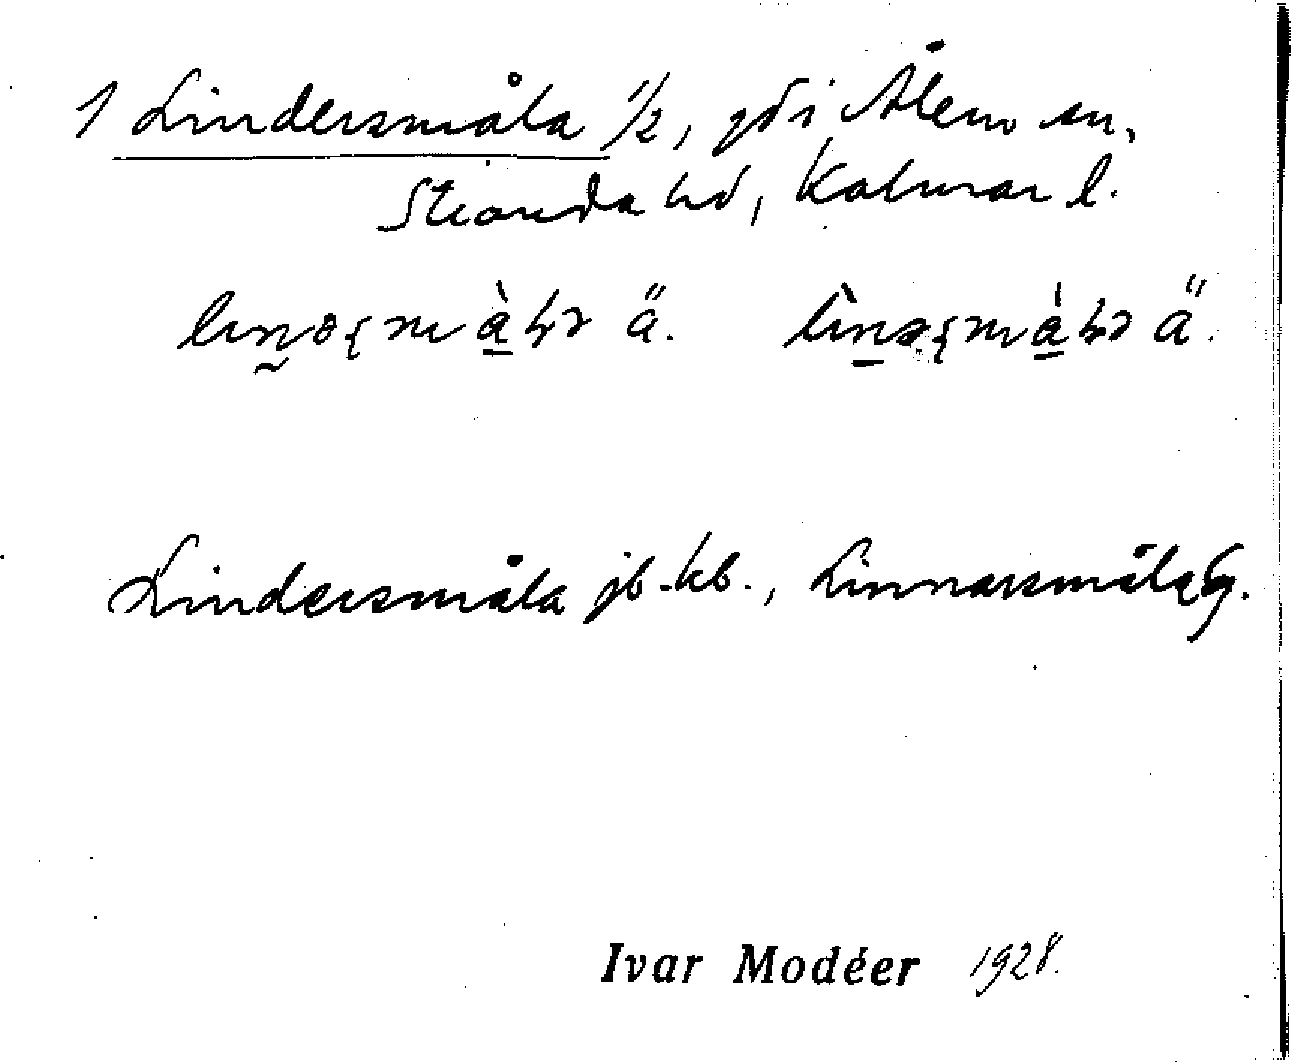 1 Lindersmåla 1/2, gd i Ålem sn,
Stranda hd, Kalmar l.
ä. ä.
Lindersmåla jb.-kb., Linnarsmåla G.
Ivar Modéer 1928.